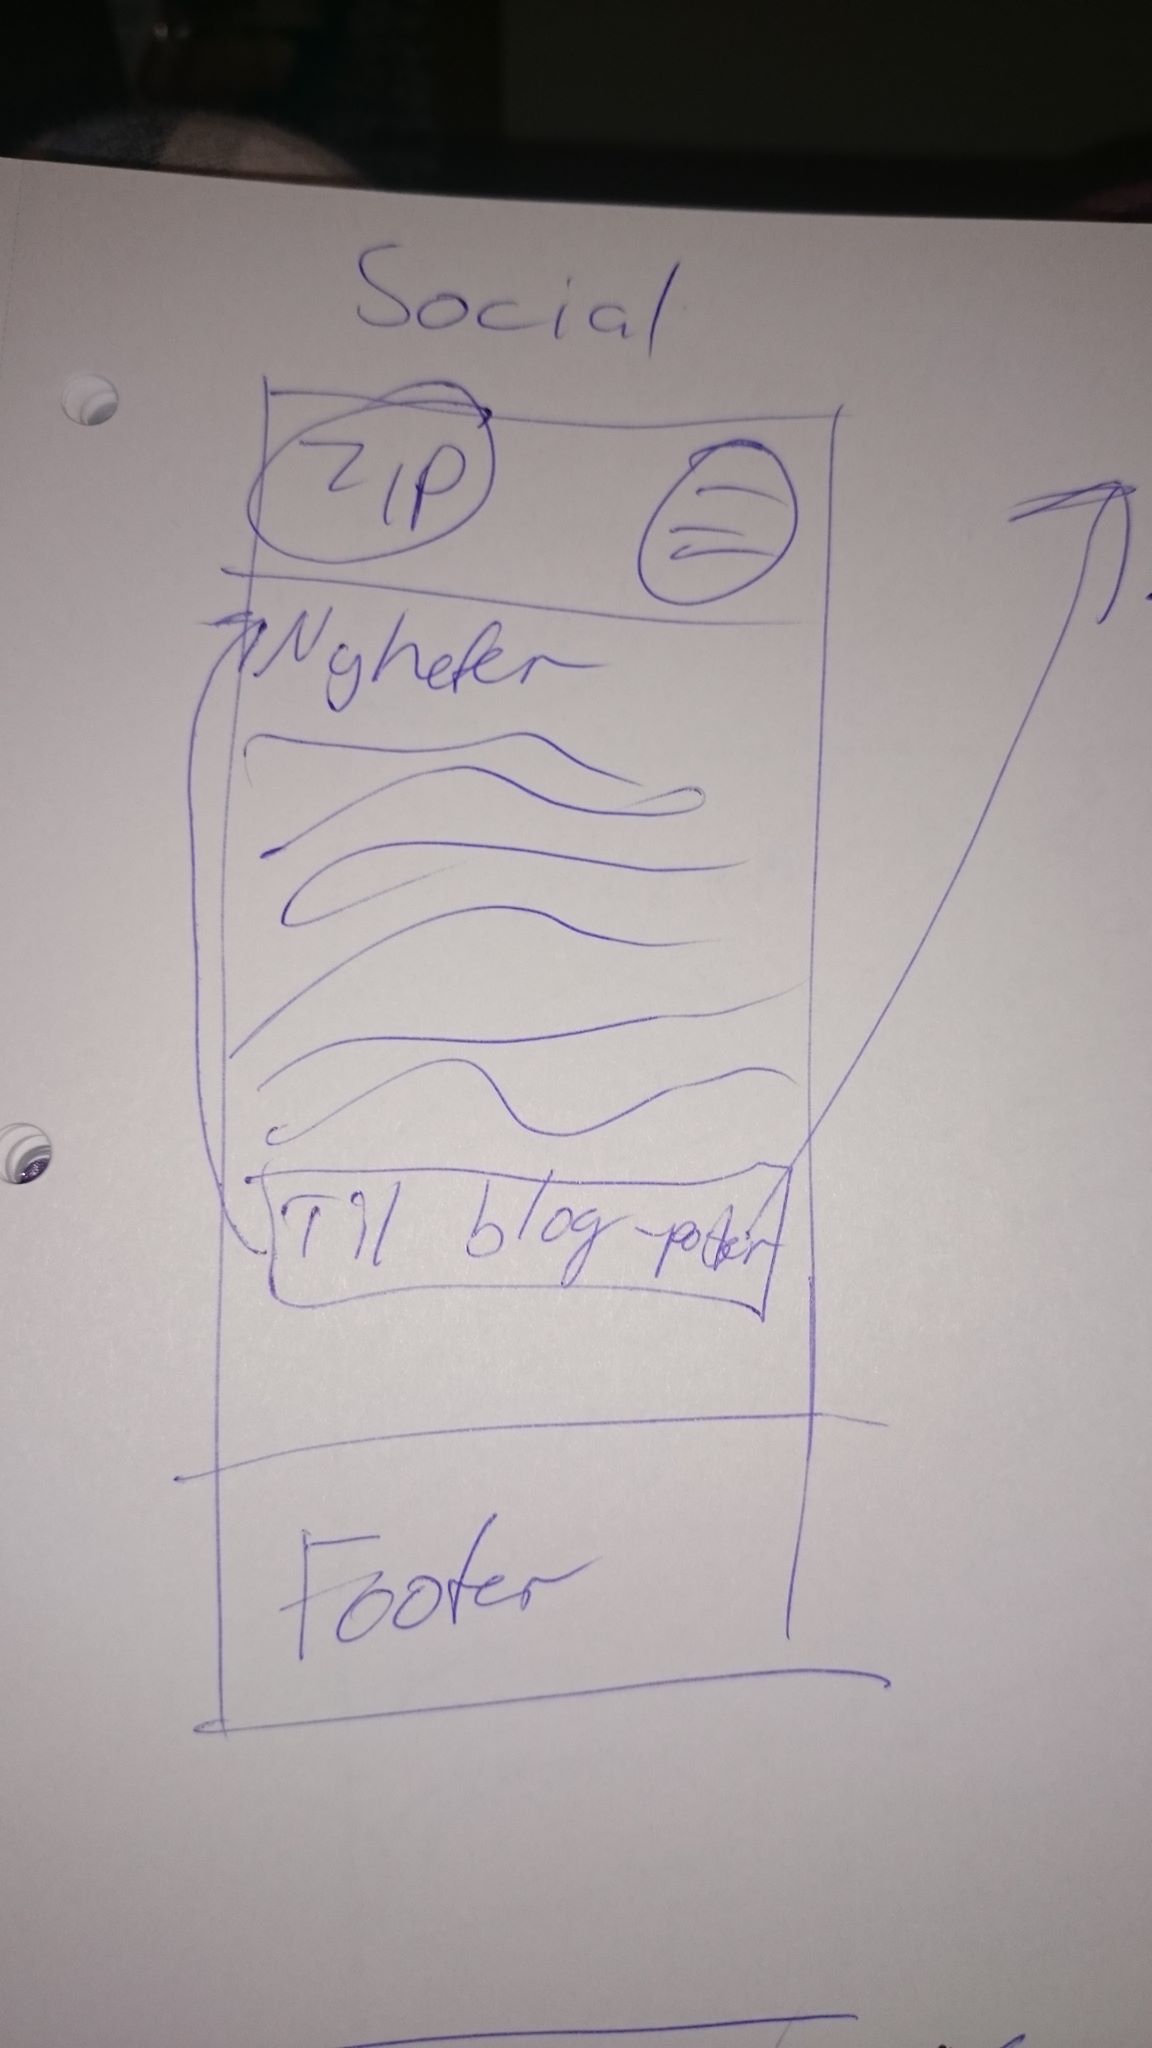 Social
ZIP
Nyheter
Till blog-poster
Footer